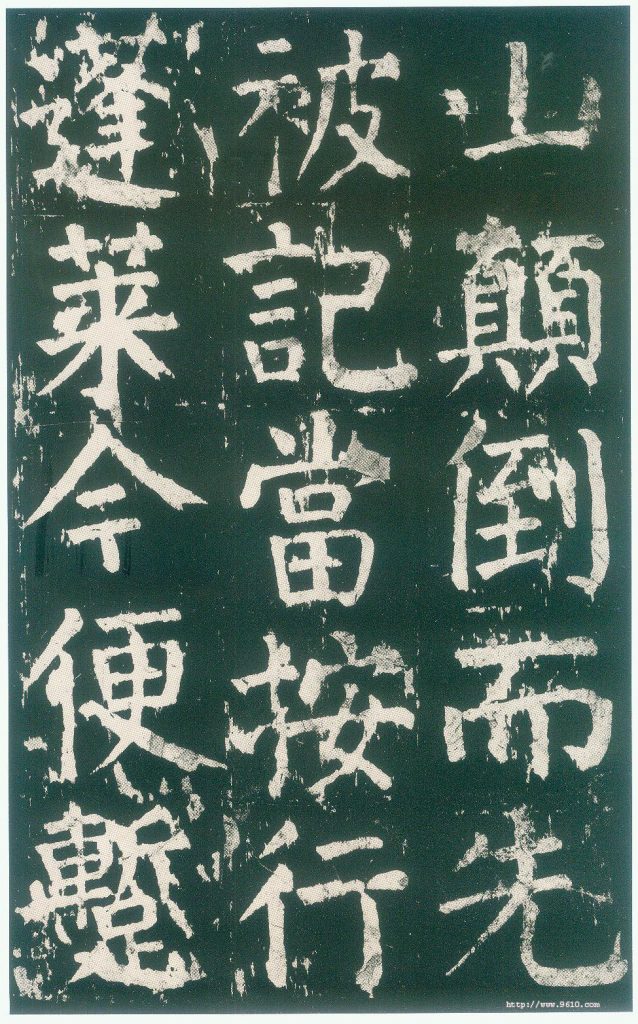 山顛倒而先
被記當按行
蓬萊今便蹔
http://www.9610.com